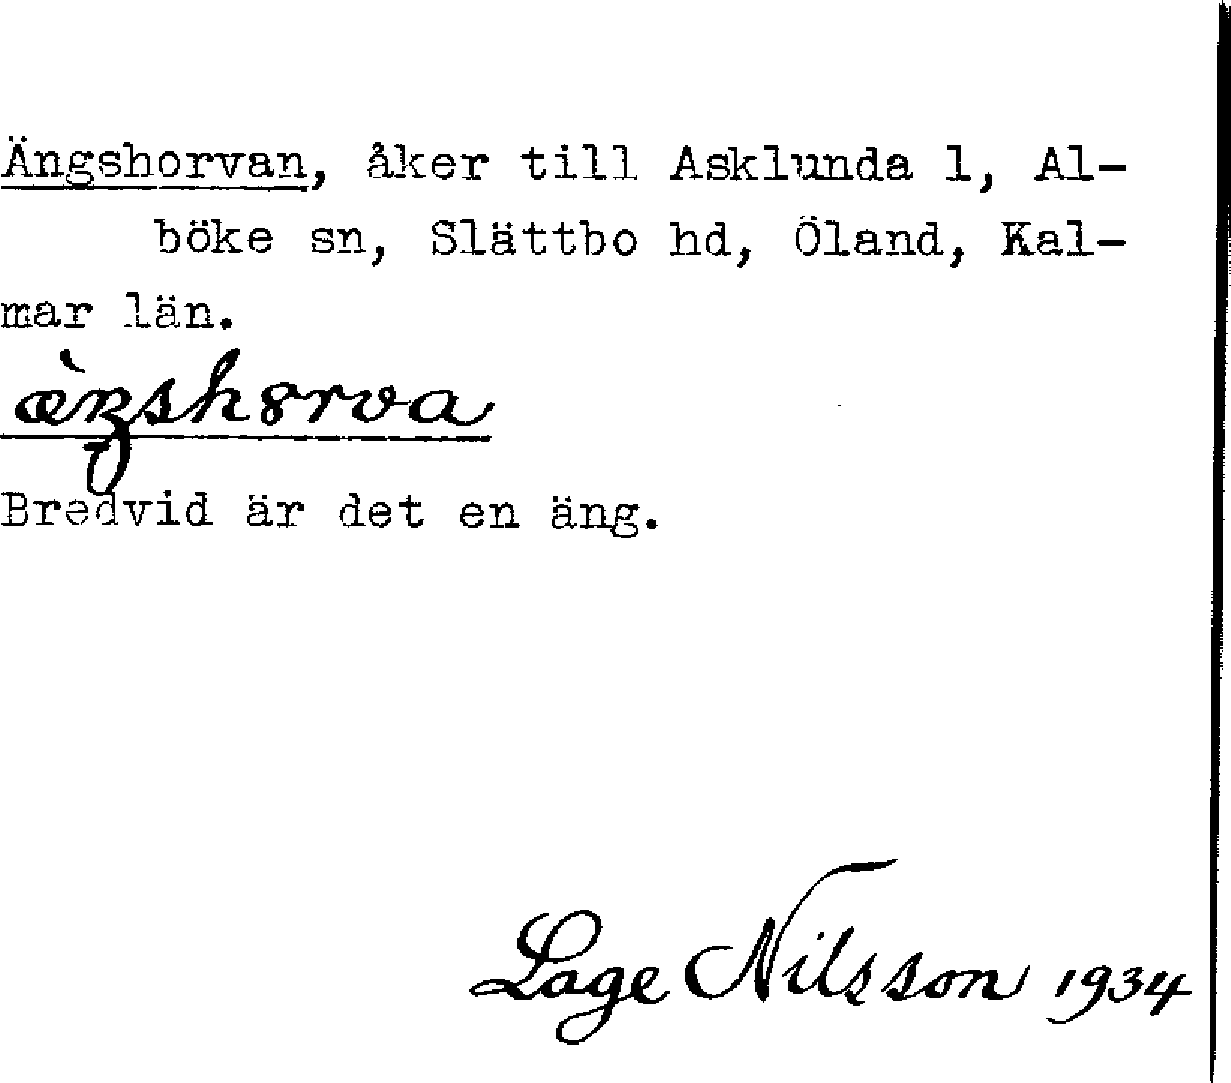 Ängshorvan, åker till Asklunda 1, Al-
böke sn, Slättbo hd, Öland, Kal-
mar län.
Bredvid är det en äng.
Lage Nilsson 1934